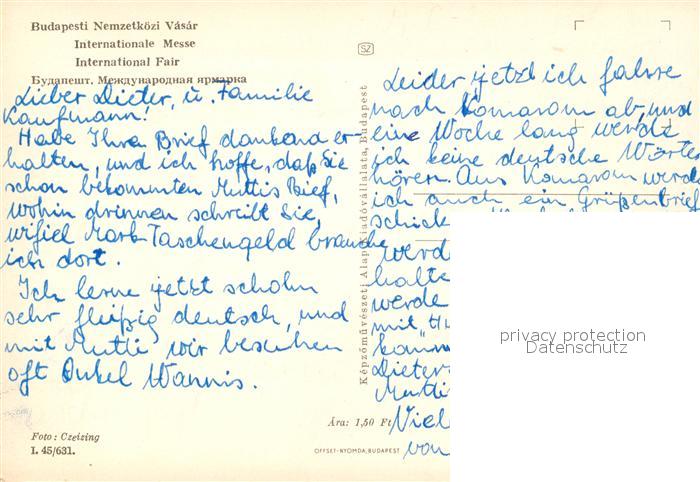 Budapesti Nemzetközi Vásár
Internationale Messe
International Fair
Будапешт. Международная ярмарка
Lieber Dieter, u. Familie
Kaufmann!
Habe Ihren Brief dankend er-
halten, und ich hoffe, daß Sie
schon bekommten Muttis Brief,
wohin drinnen schreibt Sie,
wifiel Mark Taschengeld brauche
ich dort.
Ich lerne jetzt schohn
sehr fleißig deutsch, und
mit Mutti wir besuchen
oft Onkel Wannis.
Foto: Czeizing
I. 45/631.
SZ
Képzőművészeti Alap Kiadóvállalata, Budapest
Ára: 1,50 Ft
OFFSET-NYOMDA, BUDAPEST
Leider jetzt ich fahre
nach Komarom ab, und
eine Woche lang werde
ich keine deutsche Wörter
hören. Aus Komarom werde
ich auch ein Grüßenbrief
schick
werd
halte
werde
mit
komm
Dieter
Mutti
Viel
von
privacy protection
Datenschutz